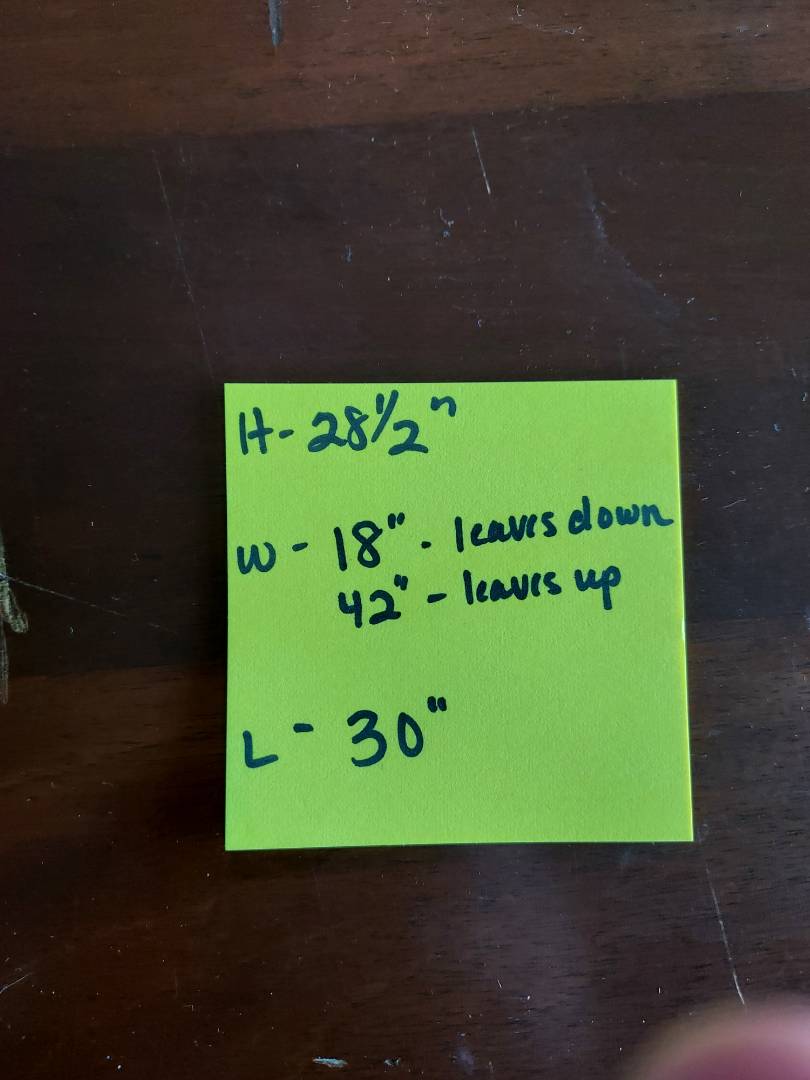 H- 28 1/2"
W - 18" - leaves down
42" - leaves up
L - 30"